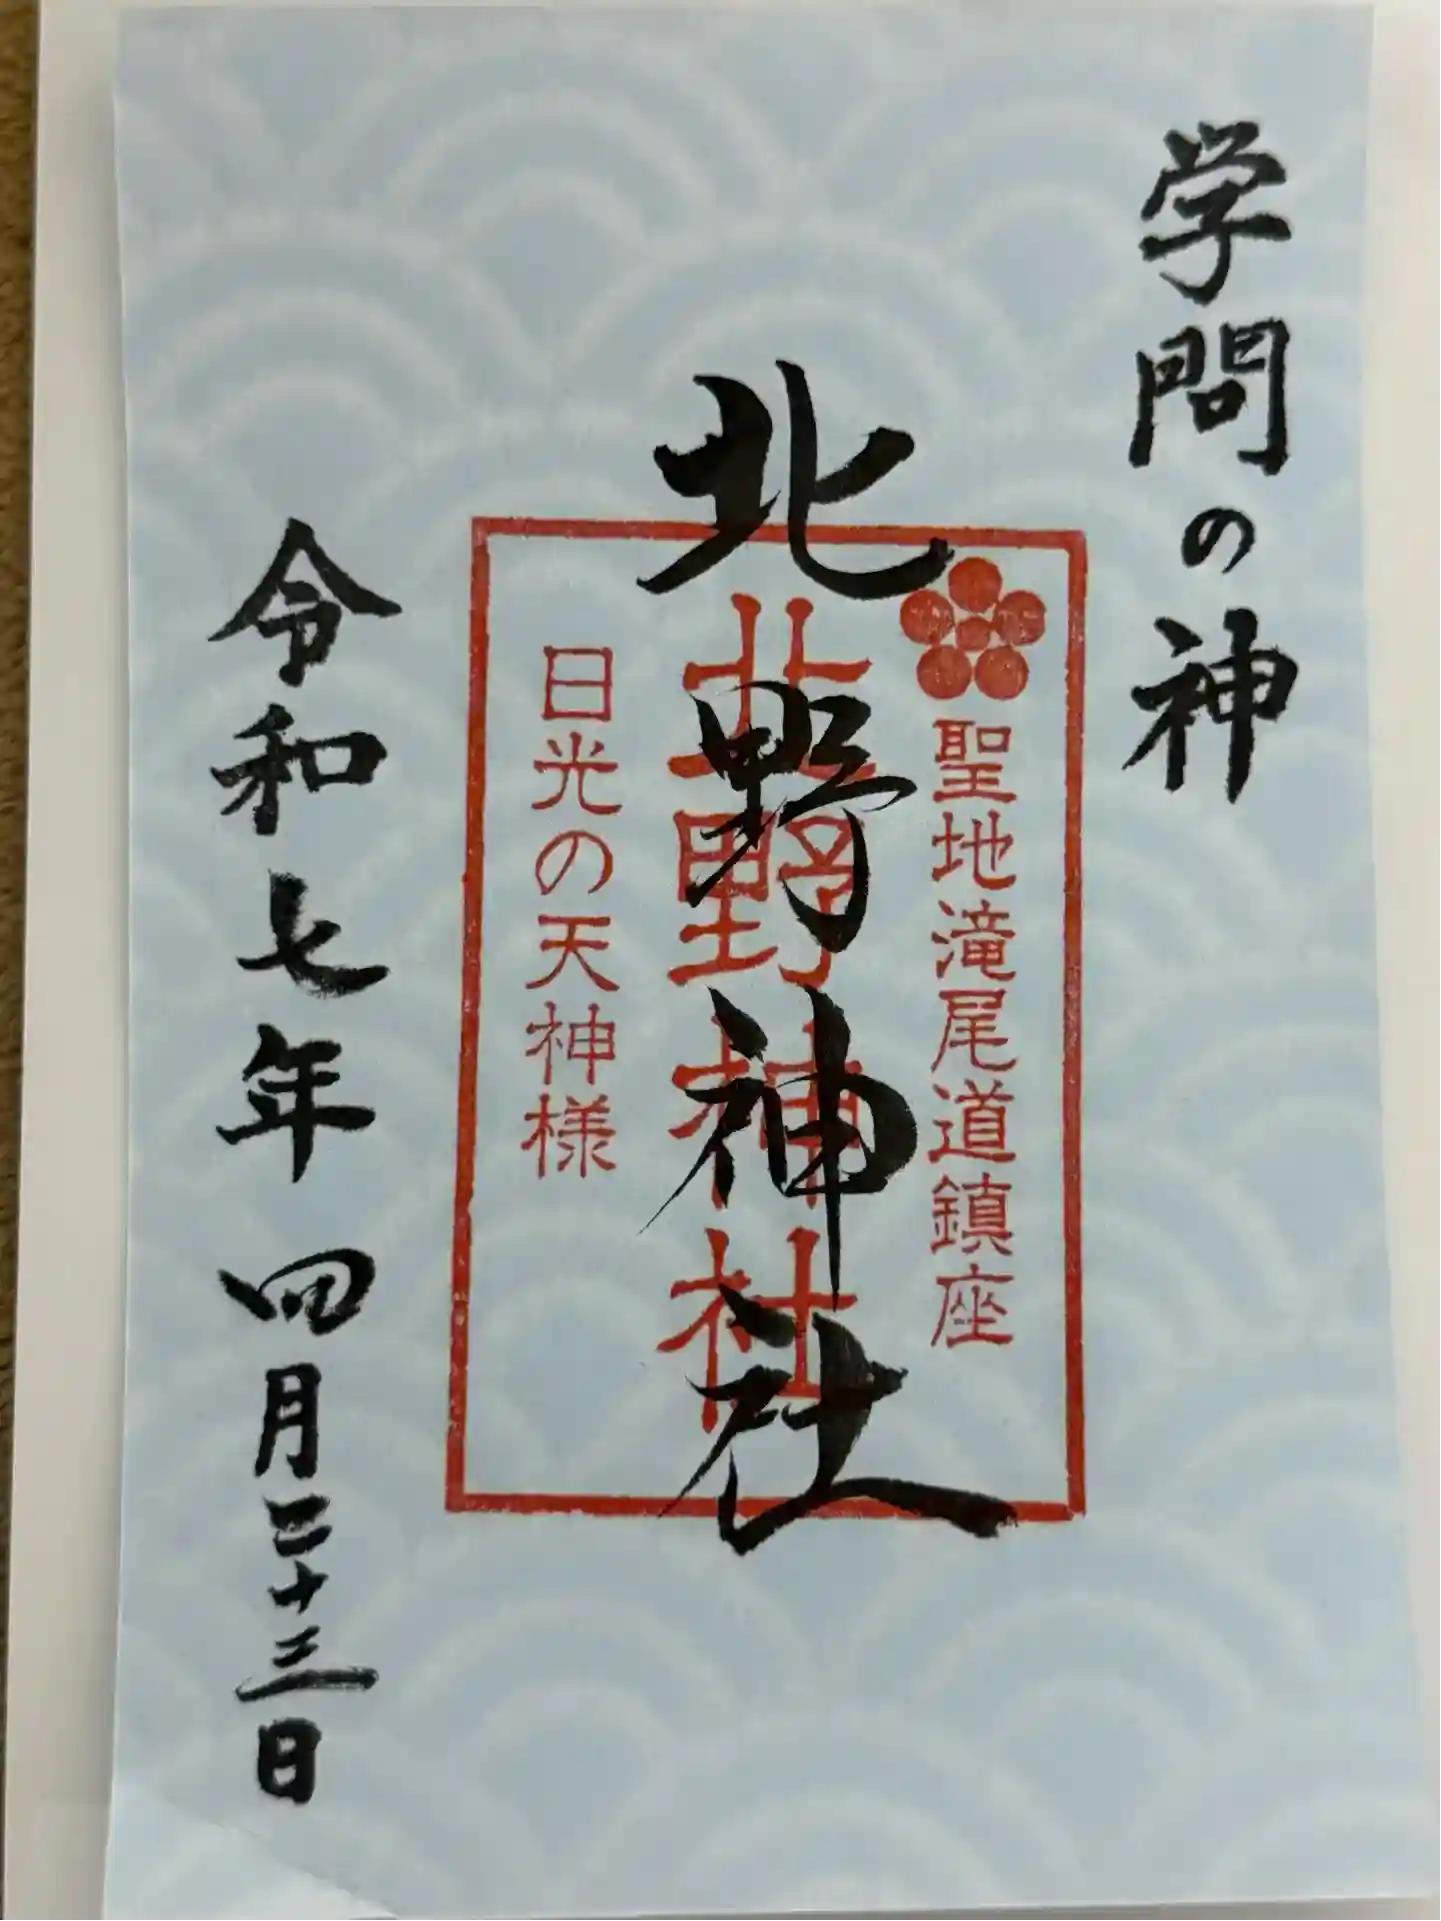 学問の神
北野神社
聖地滝尾道鎮座
北野神社
日光の天神様
令和七年 四月二十三日